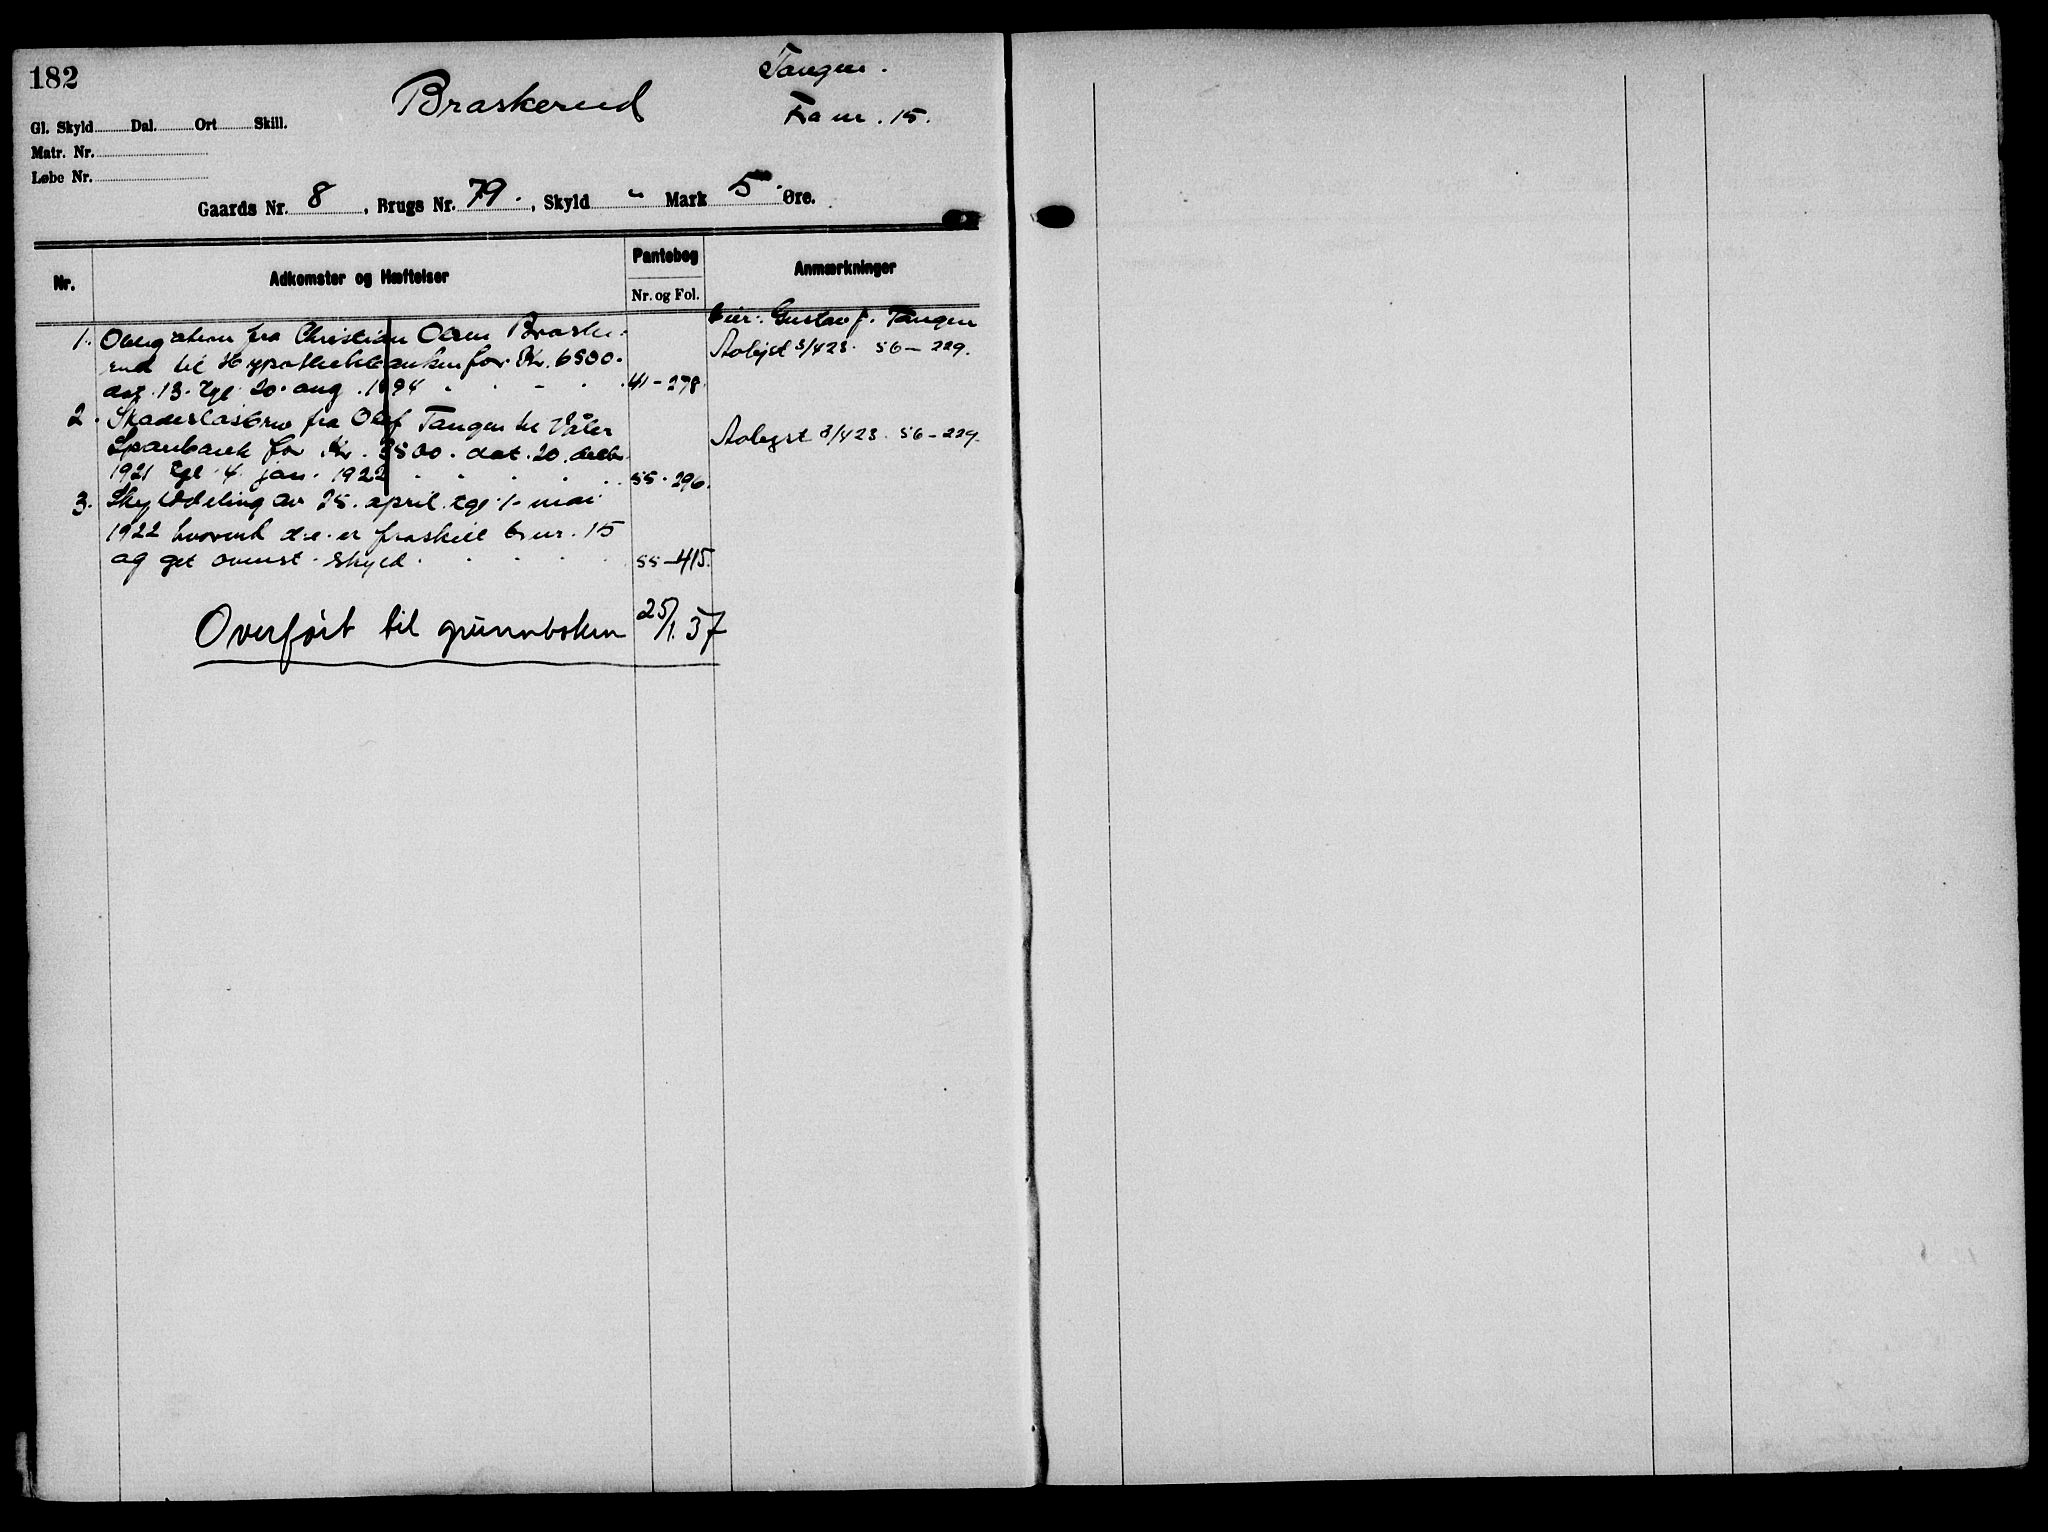 182
Braskerud
Tangen.
Fra nr. 15.
Gl. Skyld Dal. Ort Skill.
Matr. Nr.
Løbe Nr.
Gaards Nr. 8, Brugs Nr. 79., Skyld " Mark 5 Øre.
Nr. Adkomster og Hæftelser Pantebog Nr. og Fol. Anmærkninger
Eier: Gustav J. Tangen
1. Obligation fra Christian Olsen Braske-
rud til Hypothekbanken for Kr. 6500.
dat. 13. tgl. 20. aug. 1894 41-278.
Avlyst 3/4 23. 56-229.
2. Skadesløsbrev fra Olaf Tangen til Våler
Sparebank for Kr. 3500. dat. 20. decbr.
1921 tgl. 4. jan. 1922 55-296.
Avlyst 3/4 23. 56-229.
3. Skylddeling av 25. april tgl. 1. mai
1922 hvorved d.e. er fraskilt b.nr. 15
og git ovenst. skyld. 55-415.
Overført til grunnboken 25/1.37